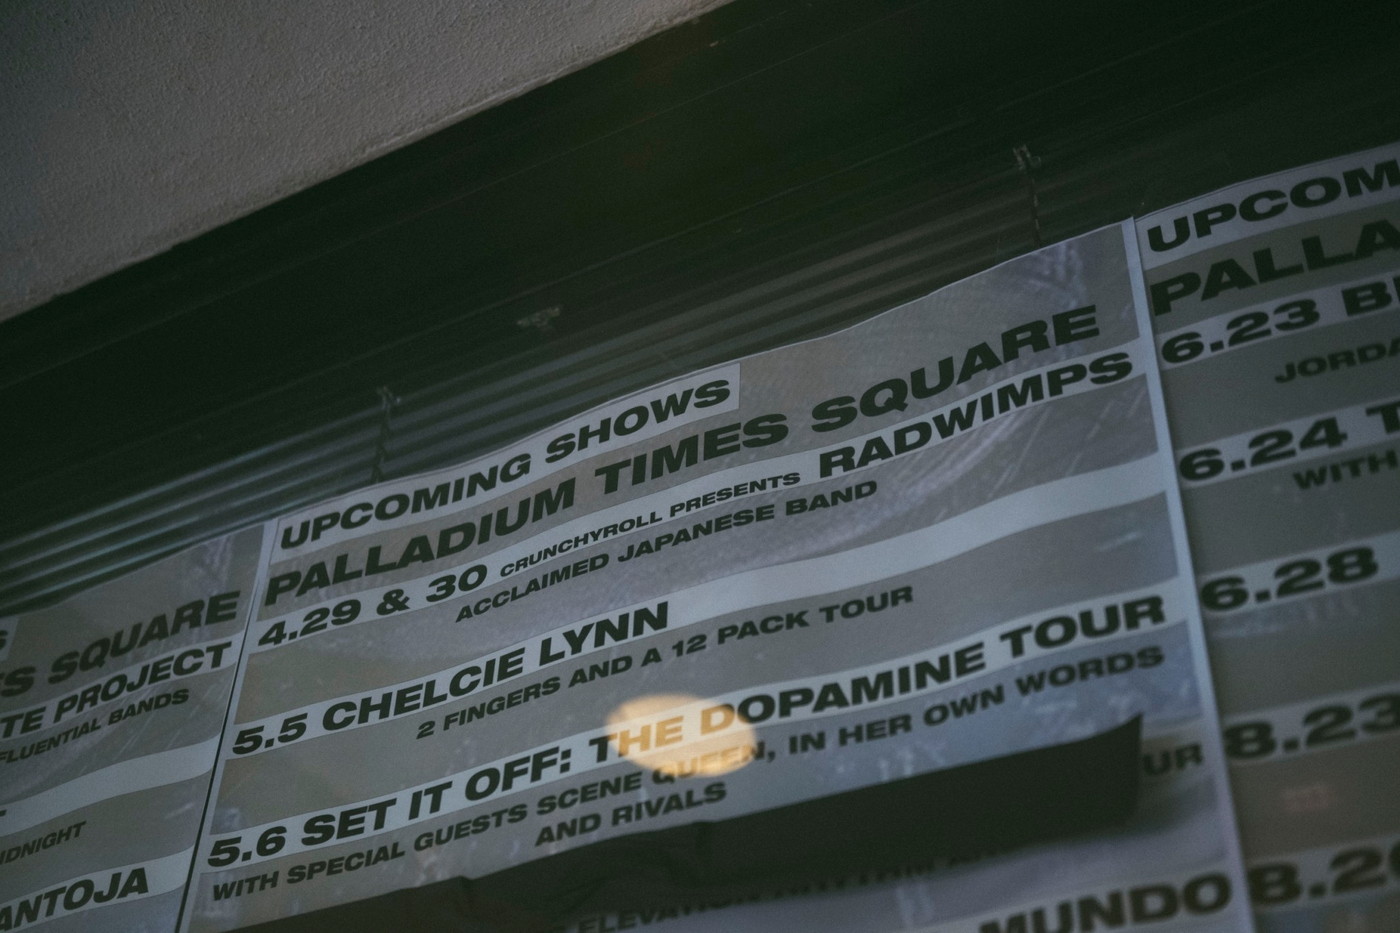 SQUARE
TE PROJECT
FLUENTIAL BANDS
IDNIGHT
ANTOJA
UPCOMING SHOWS
PALLADIUM TIMES SQUARE
4.29 & 30 CRUNCHYROLL PRESENTS RADWIMPS
ACCLAIMED JAPANESE BAND
5.5 CHELCIE LYNN
2 FINGERS AND A 12 PACK TOUR
5.6 SET IT OFF: THE DOPAMINE TOUR
WITH SPECIAL GUESTS SCENE QUEEN, IN HER OWN WORDS
AND RIVALS
UR
MUNDO
UPCOM
PALLA
6.23 B
JORDA
6.24 T
WITH
6.28
8.23
8.2